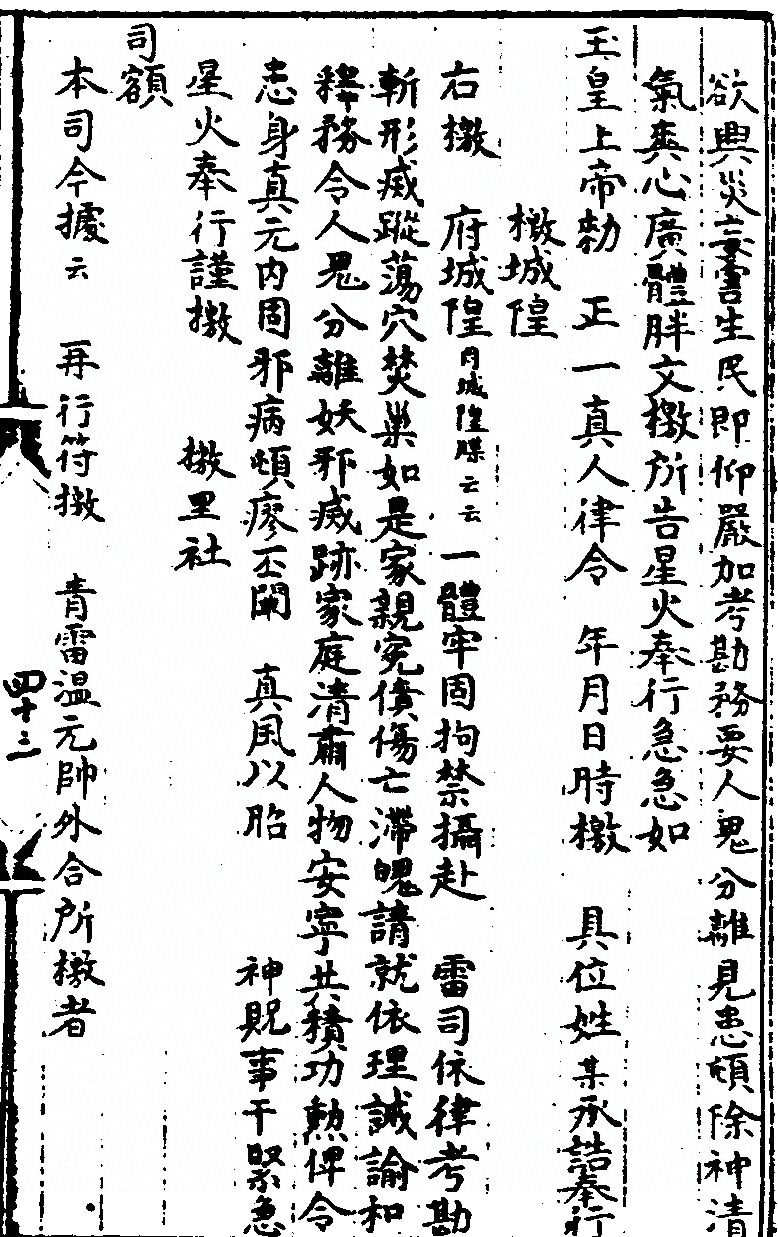 欲興災妄害生民即仰嚴加考勘務要人鬼分離見患頓除神清
氣爽心廣體胖文檄所告星火奉行急急如
玉皇上帝勑　正一真人律令　年月日時檄　具位姓某承誥奉行
檄城隍
右檄　府城隍同城隍牒云云一體牢固拘禁攝赴　雷司依律考勘
斬形滅蹤蕩穴焚巢如是家親冤債傷亡滯魄請就依理誠諭和
釋務令人鬼分離妖邪滅跡家庭清肅人物安寧共積功勲俾令
患身真元内固邪病頓瘳丕闡　真風以貽　神貺事干緊急
星火奉行謹檄　檄里社
司額
本司今據云　再行符檄　青雷温元帥外合所檄者
四十三